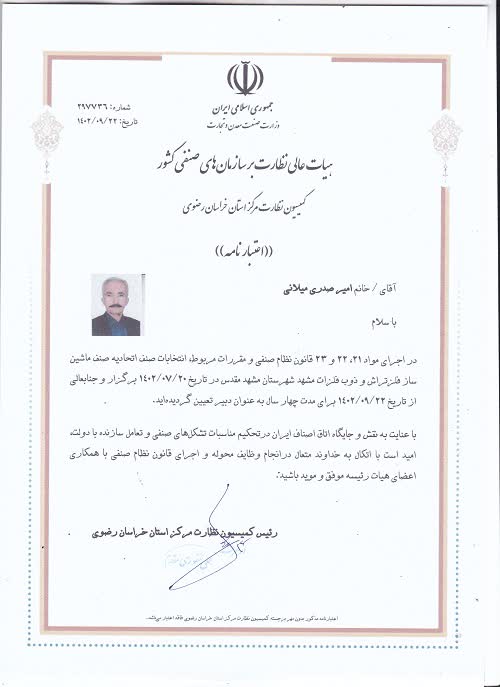 جمهوری اسلامی ایران
وزارت صنعت معدن و تجارت
شماره: ۲۹۷۷۳۶
تاریخ: ۱۴۰۲/۰۹/۲۲
هیات عالی نظارت بر سازمان های صنفی کشور
کمیسیون نظارت مرکز استان خراسان رضوی
((اعتبارنامه))
آقای / خانم امیر صدری میلانی
با سلام
در اجرای مواد ۲۱، ۲۲ و ۲۳ قانون نظام صنفی و مقررات مربوط، انتخابات صنف اتحادیه صنف ماشین
ساز فلزتراش و ذوب فلزات مشهد شهرستان مشهد مقدس در تاریخ ۱۴۰۲/۰۷/۲۰ برگزار و جنابعالی
از تاریخ ۱۴۰۲/۰۹/۲۲ برای مدت چهار سال به عنوان دبیر تعیین گردیده‌اید.
با عنایت به نقش و جایگاه اتاق اصناف ایران در تحکیم مناسبات تشکل‌های صنفی و تعامل سازنده با دولت،
امید است با اتکال به خداوند متعال در انجام وظایف محوله و اجرای قانون نظام صنفی با همکاری
اعضای هیات رئیسه موفق و موید باشید.
رئیس کمیسیون نظارت مرکز استان خراسان رضوی
اعتبارنامه مذکور بدون مهر برجسته کمیسیون نظارت مرکز استان خراسان رضوی فاقد اعتبار می‌باشد.